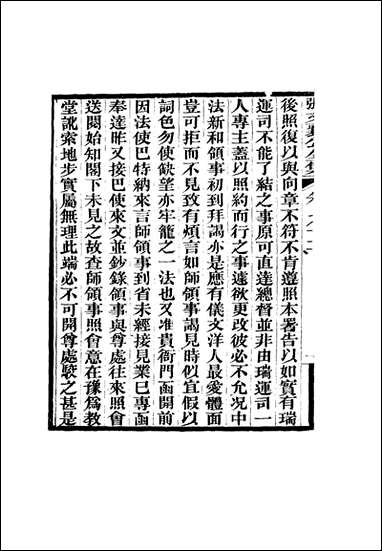 張文襄公全集
後照復以與向章不符不肯遵照本署告以如實有瑞
運司不能了結之事原可直達總督並非由瑞運司一
人專主蓋以照約而行之事遽欲更改彼必不允況中
法新和領事初到拜謁亦是應有儀文洋人最愛體面
豈可拒而不見致有煩言如師領事謁見時似宜假以
詞色勿使缺望亦牢籠之一法也又准貴衙門函開前
因法使巴特納來言師領事到省未經接見業已專函
奉達昨又接巴使來文並鈔錄領事與尊處往來照會
送閱始知閣下未見之故查師領事照會意在豫為教
堂訛索地步實屬無理此端必不可開尊處駁之甚是